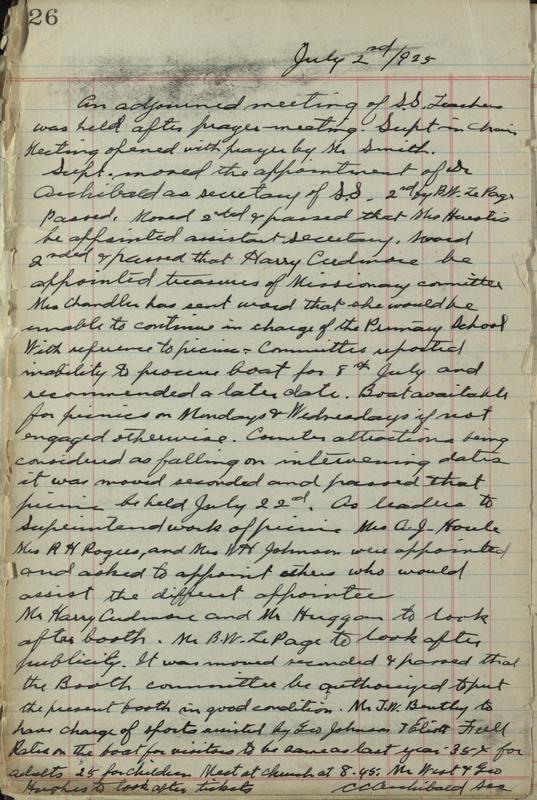 26
July 2nd/925
An adjourned meeting of S.S. Teachers
was held after prayer-meeting. Supt in Chair
Meeting opened with prayer by Mr Smith.
Supt. moved the appointment of Dr
Archibald as secretary of S.S. 2nd by B.W. LePage
Passed. Moved 2nded & passed that Mrs Huestis
be appointed assistant secretary. Moved
2nded & passed that Harry Cudmore be
appointed treasurer of Missionary committee
Mrs Chandler has sent word that she would be
unable to continue in charge of the Primary School
With reference to picnic - Committee reported
inability to procure boat for 8th July and
recommended a later date. Boat available
for picnics on Mondays & Wednesdays if not
engaged otherwise. Counter attractions being
considered as falling on intervening dates
it was moved seconded and passed that
picnic be held July 22d. As leaders to
superintend work of picnic Mrs A.J. Houle
Mrs R H Rogers, and Mrs W H Johnson were appointed
and asked to appoint others who would
assist the different appointee
Mr Harry Cudmore and Mr Huggan to look
after booth. Mr B.W. LePage to look after
publicity. It was moved seconded & passed that
the Booth committee be authorized to put
the present booth in good condition. Mr J.W. Bently to
have charge of sports assisted by Geo Johnson & Eliott Full
Rates on the boat for visitors to be same as last year. 35¢ for
adults 25 for children Meet at church at 8.45. Mr West & Geo
Hughes to look after tickets C C Archibald Sec